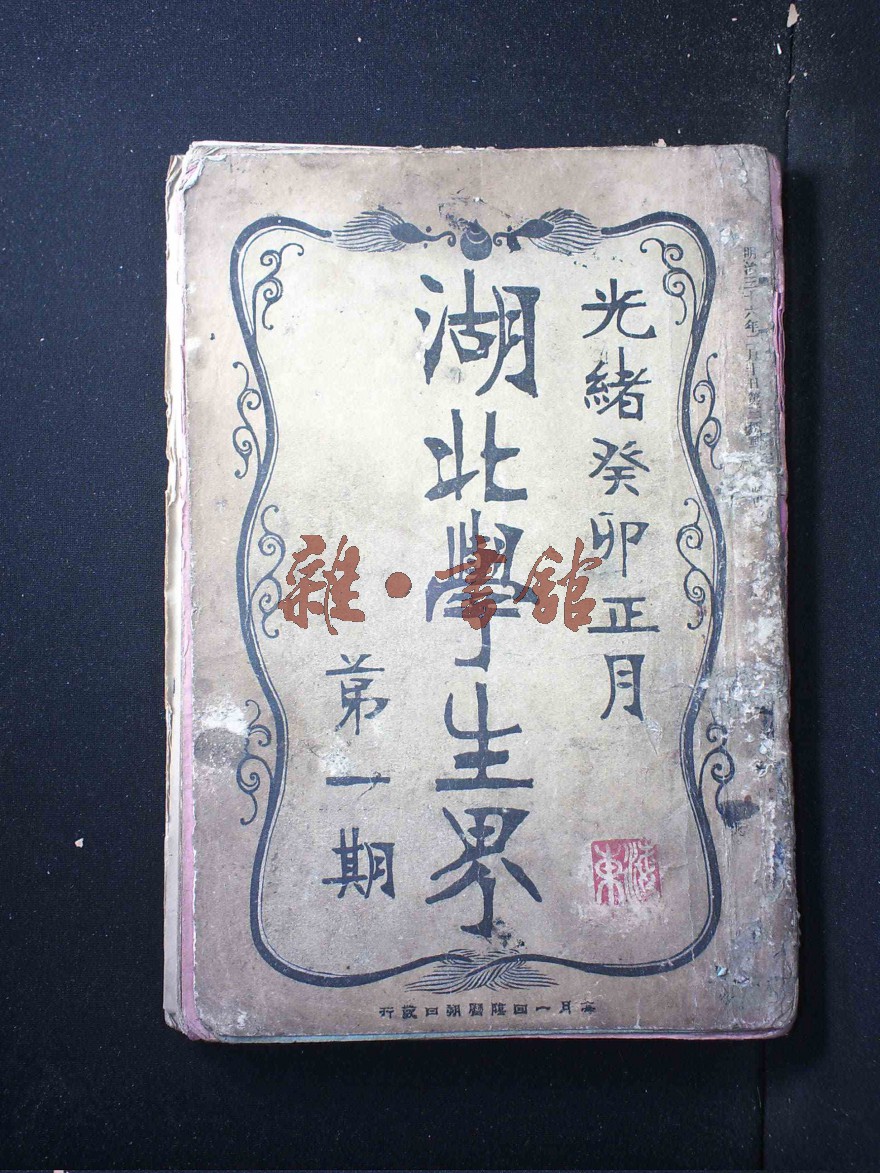 明治三十六年
光緒癸卯正月
湖北學生界
第一期
每月一回陰曆朔日發行
雜·書舘